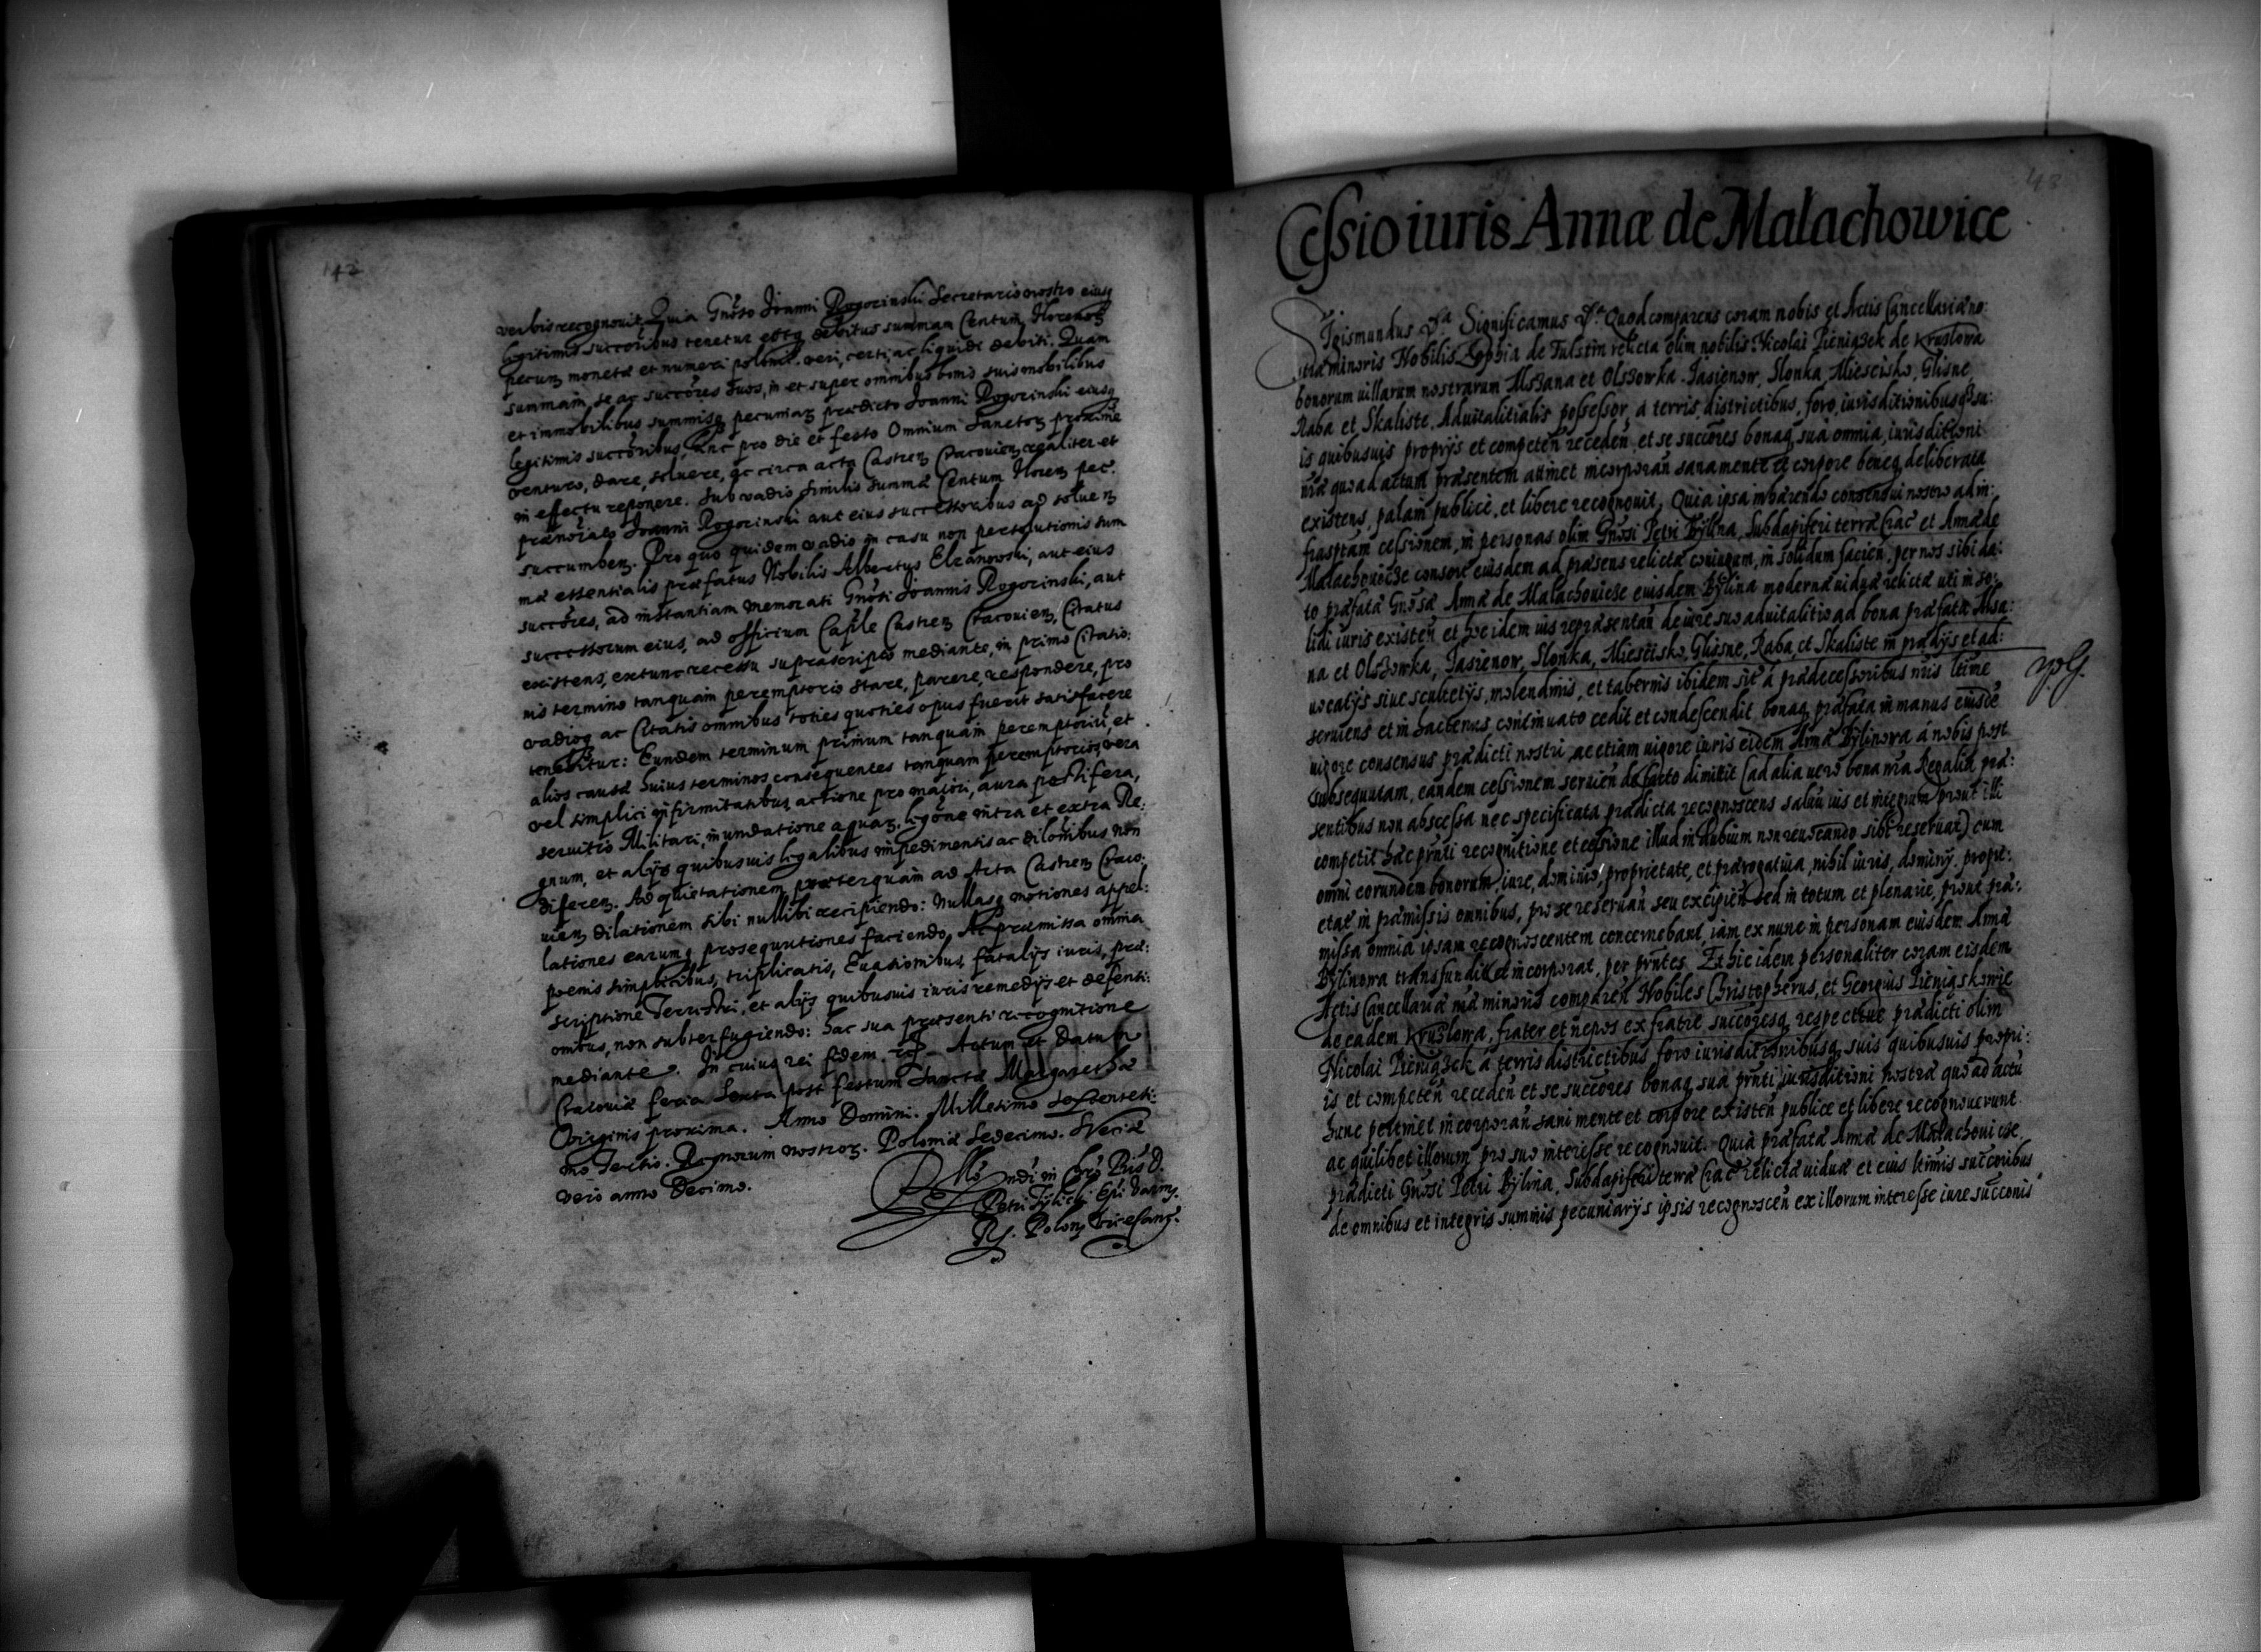 142
verbis recognovit. Quia Gnoso Joanni Rogozinski Secretario nostro eiusq
legitimis succoribus tenetur estq debitus summam Centum florenoꝝ
pecun monetæ et numeri polonic. veri, certi, ac liquidi debiti. Quam
summam, se ac succores suos, in et super omnibus bonis suis mobilibus
et immobilibus summisq pecuniaꝝ prædicto Joanni Rogozinski eiusq
legitimis succoribus, hinc pro die et festo Omnium Sanctoꝝ proxime
venturo, dare, soluere, ac circa acta Castren Cracouien realiter et
in effectu reponere. Sub vadio similis summæ Centum floren pec.
prænoiato Joanni Rogozinski aut eius successoribus ad soluen
succumben. Pro quo quidem vadio in casu non persolutionis sum
mæ essentialis præfatus Nobilis Albertus Elzanowski, aut eius
succores, ad instantiam memorati Gnosi Joannis Rogozinski, aut
successorum eius, ad officium Casple Castren Cracouien, Citatus
existens, extunc recessu suprascripto mediante, in primo Citatio:
nis termino tanquam peremptorio stare, parere, respondere, pro
vadioq ac Citatis omnibus toties quoties opus fuerit satisfacere
tenebitur: Eundem terminum primum tanquam peremptoriu, et
alios causæ huius terminos consequentes tanquam peremptorios, vera
vel simplici infirmitatibus, actione pro maiori, aura pestifera,
seruitio Militari, inundatione aquaꝝ, legone intra et extra Re:
gnum, et alijs quibusuis legalibus impedimentis ac dilonibus non
diferen. Ad quietationem præterquam ad Acta Castren Craco:
uien dilationem sibi nullibi recipiendo: Nullasq motiones appel:
lationes earumq prosequutiones faciendo, Ac præmissa omnia
poenis simplicibus, triplicatis, Euasionibus, fatalijs iuris, præ:
scriptione Terrestri, et alijs quibusuis iuris remedijs et defensi:
onibus, non subterfugiendo: hac sua præsenti recognitione
mediante. In cuius rei fidem Actum et Datum
Cracoviæ feria Sexta post festum Sanctæ Margarethæ
Virginis proxima. Anno Domini. Millesimo Sexcentesi:
mo Tertio. Regnorum nostroꝝ. Poloniæ Sedecimo. Sveciæ
vero anno Decimo.
Petri Tylicki Epi Varm.
R. Polon Vicecanc.
43
Cessio iuris Annæ de Malachowice
Sigismundus Significamus Quod comparens coram nobis et Actis Cancellariæ no:
stræ minoris Nobilis Zophia de Fulstin relicta olim nobilis Nicolai Pieniązek de Kruzlowa
bonorum uillarum nostrarum Mszana et Olszowka. Jasienow, Slonka, Miescisko, Glisne
Raba et Skaliste, Aduitalitialis possessor, a terris, districtibus, foro, iurisditionibusq su:
is quibusuis proprijs et competen receden, et se succores bonaq sua omnia, iurisditioni
nræ quo ad actum præsentem attinet incorporan sana mente et corpore beneq deliberata
existens, palam publice, et libere recognouit, Quia ipsa inhærendo consensui nostro ad in:
frasptam cessionem, in personas olim Gnosi Petri Bylina, Subdapiferi terræ Crac et Annæ de
Malachowicze consore eiusdem ad præsens relictæ coniugum, in solidum facien, per nos sibi da:
to præfatæ Gnosæ Annæ de Malachowicze eiusdem Bylina modernæ uiduæ relictæ uti in so:
lidi iuris existen et hoc idem ius repræsentan de iure suo aduitalitio ad bona præfata Msza:
na et Olszowka, Jasienow, Slonka, Miescisko, Glisne, Raba, et Skaliste in prædijs et ad:
uocatijs siue scultetijs, molendinis, et tabernis ibidem sit a prædecessoribus nris ltime
seruiens et in hactenus continuato cedit et condescendit bonaq præfata in manus eiusde
uigore consensus prædicti nostri, ac etiam uigore iuris eidem Annæ Bylinowa a nobis post
subsequutam, eandem cessionem seruien de facto dimittit (ad alia uero bona nra Regalia præ:
sentibus non abscessa nec specificata prædicta recognoscens saluu ius et integrum prout illi
competit hac pnti recognitione et cessione illud in dubium non reuocando sibi reseruat) cum
omni eorundem bonorum, iure, dominio, proprietate, et prærogatiua, nihil iuris, dominij, propri:
etat in præmissis omnibus, pro se reseruan seu excipien sed in totum et plenarie, prout præ:
missa omnia ipsam recognoscentem concernebant, iam ex nunc in personam eiusdem Annæ
Bylinowa transfundit et incorporat, per pntes. Et hic idem personaliter coram eisdem
Actis Cancellariæ nræ minoris comparen Nobiles Christopherus, et Georgius Pieniązkowie
de eadem Kruzlowa, frater et nepos ex fratre succoresq respectiue prædicti olim
Nicolai Pieniązek a terris districtibus foro iurisditionibusq suis quibusuis propri:
is et competen receden et se succores bonaq sua pnti iurisditioni nostræ quo ad actu
hunc pertinet incorporan sani mente et corpore existen publice et libere recognouerunt
ac quilibet illorum pro suo interesse recognouit. Quia præfata Anna de Malachouicze
prædicti Gnosi Petri Bylina, Subdapiferi terræ Crac relicta uidua et eius ltimis succoribus
de omnibus et integris summis pecuniarijs ipsis recognoscen ex illorum interesse iure succonis